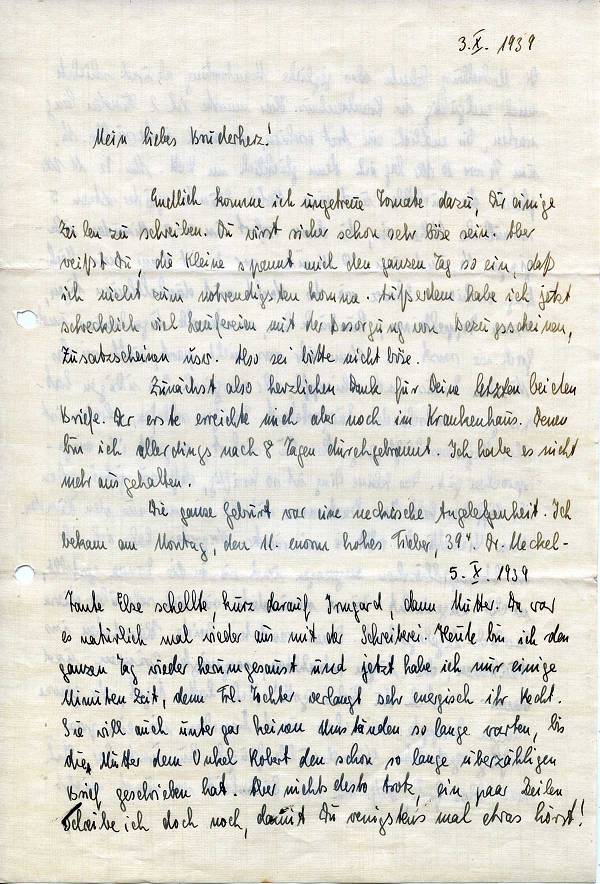 3.X. 1939
Mein liebes Bruderherz!
Endlich komme ich ungetreue Tomate dazu, Dir einige
Zeilen zu schreiben. Du wirst sicher schon sehr böse sein. Aber
weißt Du, die Kleine spannt mich den ganzen Tag so ein, daß
ich nicht zum notwendigsten komme. Außerdem habe ich jetzt
schrecklich viel Laufereien mit der Besorgung von Bezugsscheinen,
Zusatzscheinen usw. Also sei bitte nicht böse.
Zunächst also herzlichen Dank für Deine letzten beiden
Briefe. Der erste erreichte mich aber noch im Krankenhaus. Denen
bin ich allerdings nach 8 Tagen durchgebrannt. Ich habe es nicht
mehr ausgehalten.
Die ganze Geburt war eine Angelegenheit. Ich
bekam am Montag, den 11. enorm hohes Fieber, 39⁴. Dr. Meckel-
5.X. 1939
Tante Else schellte, kurz darauf Irmgard, dann Mutter. Da war
es natürlich mal wieder aus mit der Schreiberei. Heute bin ich den
ganzen Tag wieder herumgesaust und jetzt habe ich nur einige
Minuten Zeit, denn Frl. Tochter verlangt sehr energisch ihr Recht.
Sie will auch unter gar keinen Umständen so lange warten, bis
die Mutter dem Onkel Robert den schon so lange überzähligen
Brief geschrieben hat. Aber nichts desto trotz, ein paar Zeilen
schreibe ich doch noch, damit Du wenigstens mal etwas hörst!